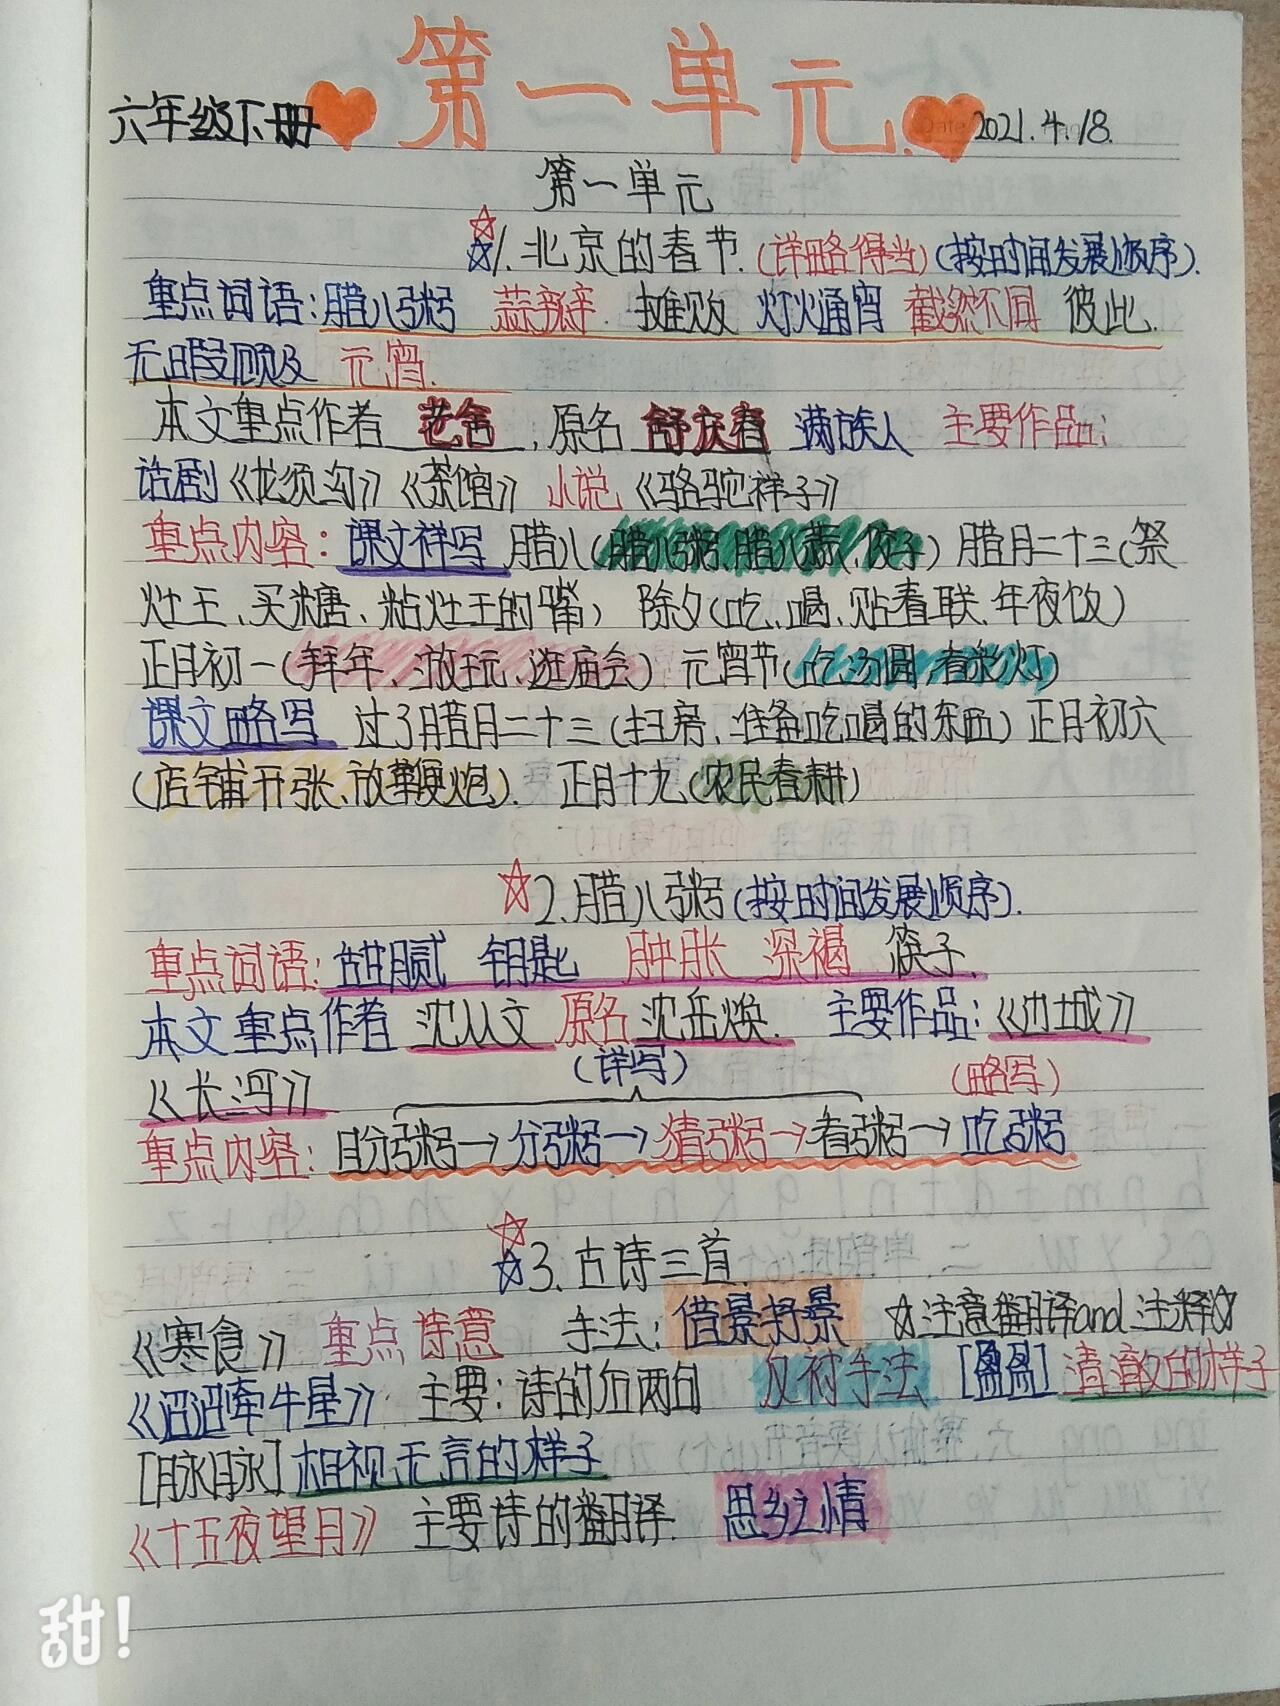 第一单元
六年级下册
2021.4.18.
第一单元
1.北京的春节.(详略得当)(按时间发展顺序).
重点词语:腊八粥 蒜瓣 摊贩 灯火通宵 截然不同 彼此.
无暇顾及 元宵.
本文重点作者 老舍,原名 舒庆春 满族人 主要作品:
话剧《龙须沟》《茶馆》 小说《骆驼祥子》
重点内容:课文祥写 腊八(腊八粥.腊八蒜、饺子) 腊月二十三(祭
灶王、买糖、粘灶王的嘴) 除夕(吃、喝、贴春联.年夜饭)
正月初一(拜年、游玩、逛庙会) 元宵节(吃汤圆,看彩灯)
课文略写 过了腊月二十三(扫房、准备吃喝的东西) 正月初六
(店铺开张、放鞭炮). 正月十九(农民春耕)
2.腊八粥(按时间发展顺序).
重点词语:甜腻 钥匙 肿胀 深褐 筷子.
本文重点作者 沈从文 原名 沈岳焕. 主要作品:《边城》
《长河》 (详写) (略写)
重点内容:盼粥→分粥→猜粥→看粥→吃粥
3.古诗三首.
《寒食》 重点 诗意 手法:借景抒景 ☆注意翻译and注释☆
《迢迢牵牛星》 主要:诗的后两句 反衬手法 [盈盈]清澈的样子
[脉脉]相视无言的样子
《十五夜望月》 主要诗的翻译. 思乡之情
甜!